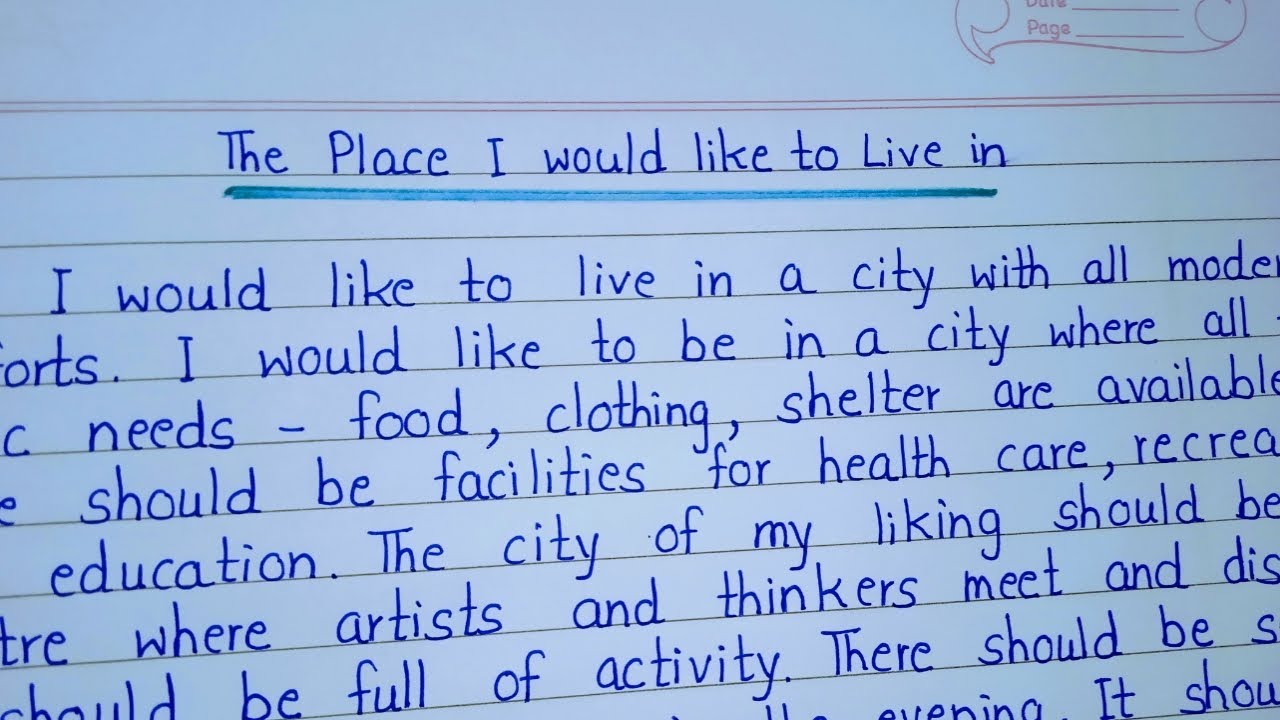 Date
Page
The Place I would like to Live in
I would like to live in a city with all moder
orts. I would like to be in a city where all
c needs - food, clothing, shelter are available
e should be facilities for health care, recrea
education. The city of my liking should be
tre where artists and thinkers meet and dis
should be full of activity. There should be s
evening. It shou